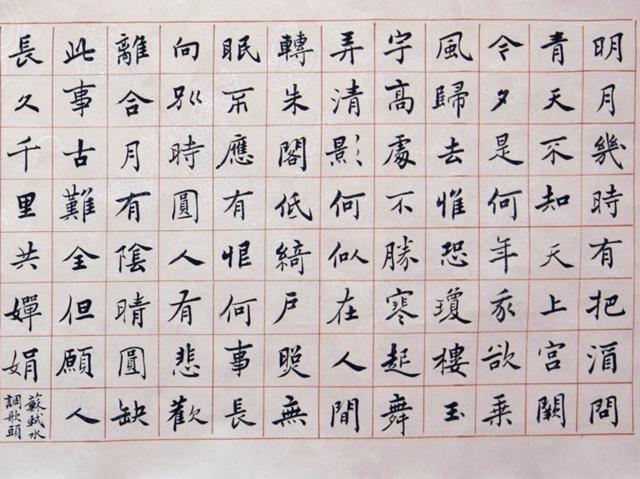 明月幾時有把酒問
青天不知天上宮闕
今夕是何年我欲乘
風歸去惟恐瓊樓玉
宇高處不勝寒起舞
弄清影何似在人間
轉朱閣低綺戶照無
眠不應有恨何事長
向別時圓人有悲歡
離合月有陰晴圓缺
此事古難全但願人
長久千里共嬋娟
蘇軾水
調歌頭